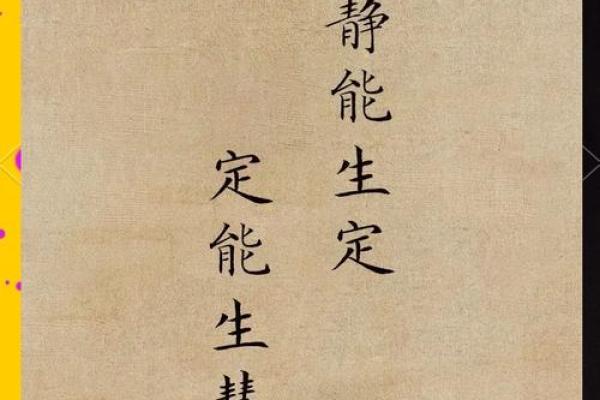 静能生定
定能生慧